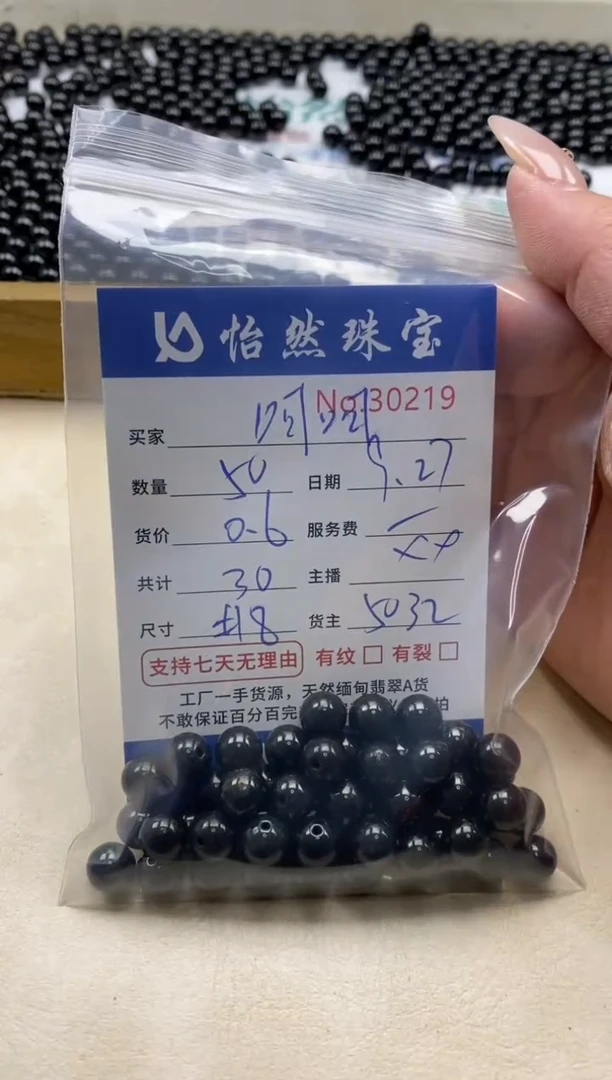 怡然珠宝
No.30219
买家 呵呵
数量 50 日期 9.27
货价 0.6 服务费
共计 30 主播
尺寸 8 货主 5032
支持七天无理由 有纹 有裂
工厂一手货源，天然缅甸翡翠A货
不敢保证百分百完